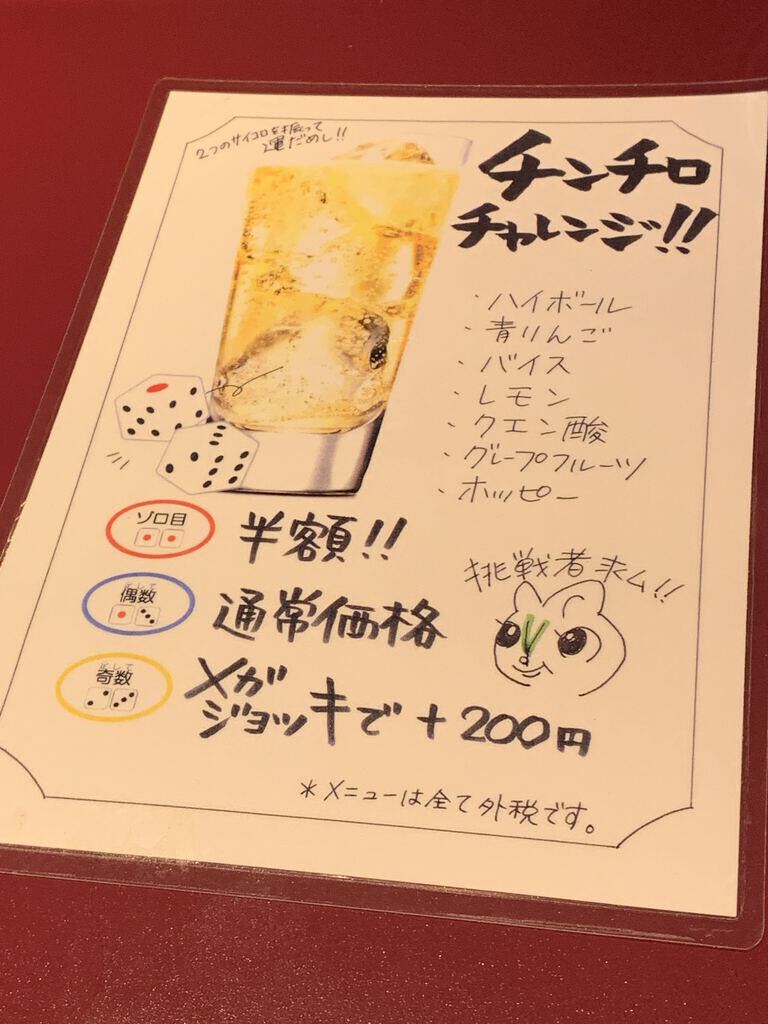 2つのサイコロを振って
運だめし!!
チンチロ
チャレンジ!!
・ハイボール
・青りんご
・バイス
・レモン
・クエン酸
・グレープフルーツ
・ホッピー
ゾロ目
半額!!
足して
偶数
通常価格
足して
奇数
メガ
ジョッキで+200円
挑戦者来ム!!
*メニューは全て外税です。